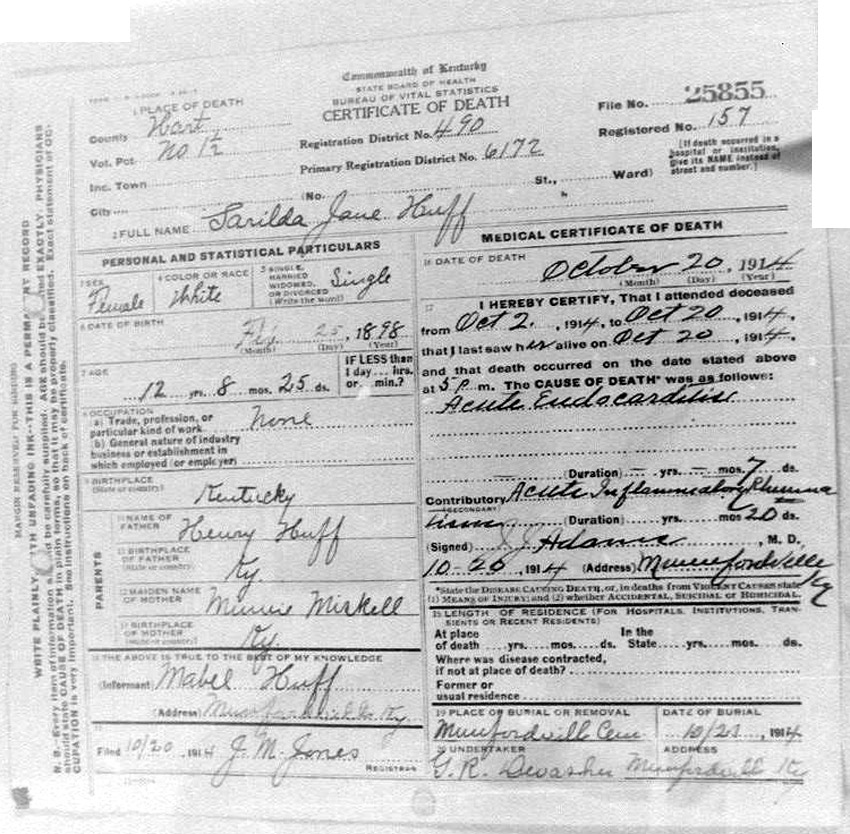 Commonwealth of Kentucky
STATE BOARD OF HEALTH
BUREAU OF VITAL STATISTICS
CERTIFICATE OF DEATH
1 PLACE OF DEATH
County Hart
Vot. Pct. No 1½
Inc. Town
City
Registration District No. 490
Primary Registration District No. 6172
(No. St., Ward)
File No. 25855
Registered No. 157
[If death occurred in a
hospital or institution,
give its NAME instead of
street and number.]
2 FULL NAME Sarilda Jane Huff
PERSONAL AND STATISTICAL PARTICULARS
3 SEX
Female
4 COLOR OR RACE
White
5 SINGLE,
MARRIED
WIDOWED,
OR DIVORCED
(Write the word)
Single
6 DATE OF BIRTH
25, 1898
(Month) (Day) (Year)
7 AGE
12 yrs. 8 mos. 25 ds.
IF LESS than
1 day.... hrs.
or.... min.?
8 OCCUPATION
a) Trade, profession, or
particular kind of work
None
b) General nature of industry
business or establishment in
which employed (or employer)
9 BIRTHPLACE
(State or country)
Kentucky
PARENTS
10 NAME OF
FATHER
Henry Huff
11 BIRTHPLACE
OF FATHER
(State or country)
Ky.
12 MAIDEN NAME
OF MOTHER
Minnie Miskell
13 BIRTHPLACE
OF MOTHER
(State or country)
Ky.
14 THE ABOVE IS TRUE TO THE BEST OF MY KNOWLEDGE
(Informant) Mabel Huff
(Address) Munfordville Ky.
15
Filed 10/20, 1914 J. M. Jones
REGISTRAR
MEDICAL CERTIFICATE OF DEATH
16 DATE OF DEATH
October 20, 1914
(Month) (Day) (Year)
17 I HEREBY CERTIFY, That I attended deceased
from Oct 2., 1914, to Oct 20, 1914,
that I last saw her alive on Oct 20, 1914,
and that death occurred on the date stated above
at 5 P m. The CAUSE OF DEATH* was as follows:
Acute Endocarditis
(Duration) — yrs. — mos. 7 ds.
Contributory Acute Inflammatory Rheuma
(SECONDARY)
tism (Duration) yrs. mos 20 ds.
(Signed) Adams, M. D.
10-20, 1914 (Address) Munfordville
Ky
*State the DISEASE CAUSING DEATH, or, in deaths from VIOLENT CAUSES state
(1) MEANS OF INJURY; and (2) whether ACCIDENTAL, SUICIDAL or HOMICIDAL.
18 LENGTH OF RESIDENCE (FOR HOSPITALS, INSTITUTIONS, TRAN-
SIENTS OR RECENT RESIDENTS)
At place
of death yrs. mos. ds.
In the
State yrs. mos. ds.
Where was disease contracted,
if not at place of death?
Former or
usual residence
19 PLACE OF BURIAL OR REMOVAL
Munfordvill Cem
DATE OF BURIAL
10/21, 1914
20 UNDERTAKER
G. R. Devasher
ADDRESS
Munfordvill Ky
MARGIN RESERVED FOR BINDING